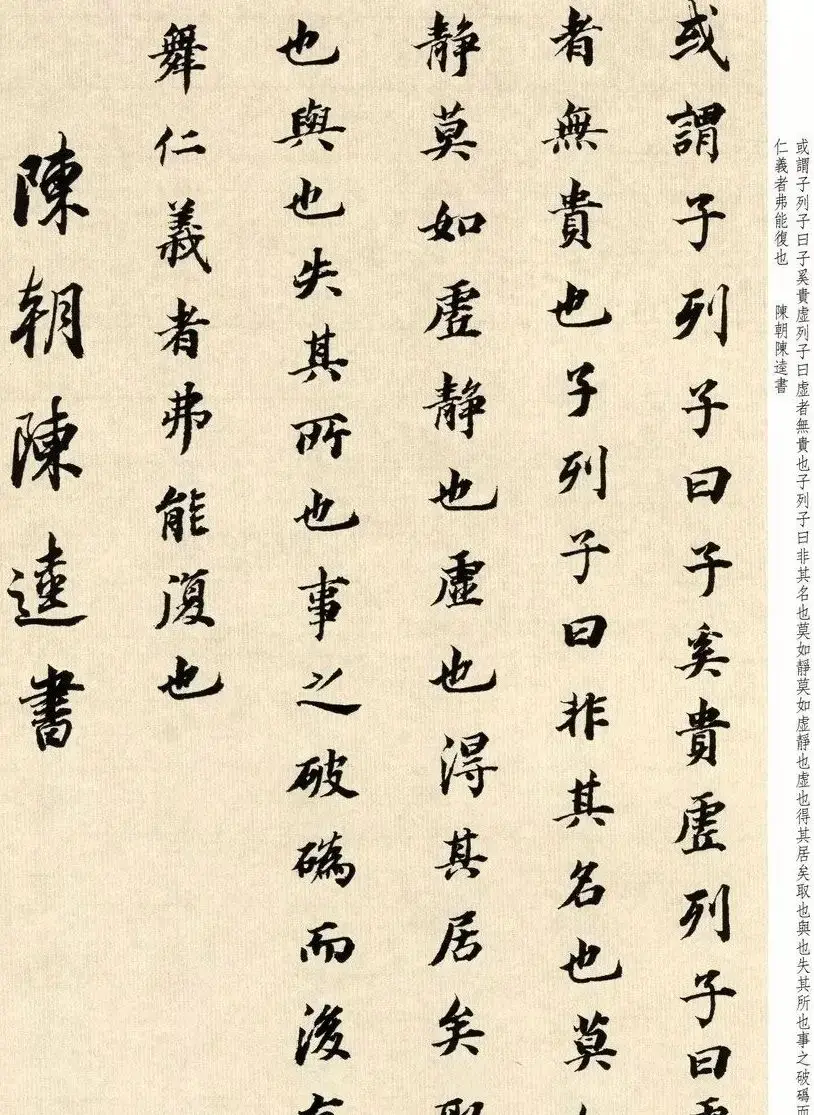 或謂子列子曰子奚貴虛列子曰虛者無貴也子列子曰非其名也莫如靜莫如虛靜也虛也得其居矣取也與也失其所也事之破䃣而
仁義者弗能復也 陳朝陳逵書
或謂子列子曰子奚貴虛列子曰虛
者無貴也子列子曰非其名也莫
靜莫如虛靜也虛也得其居矣取
也與也失其所也事之破䃣而後有
舞仁義者弗能復也
陳朝陳逵書